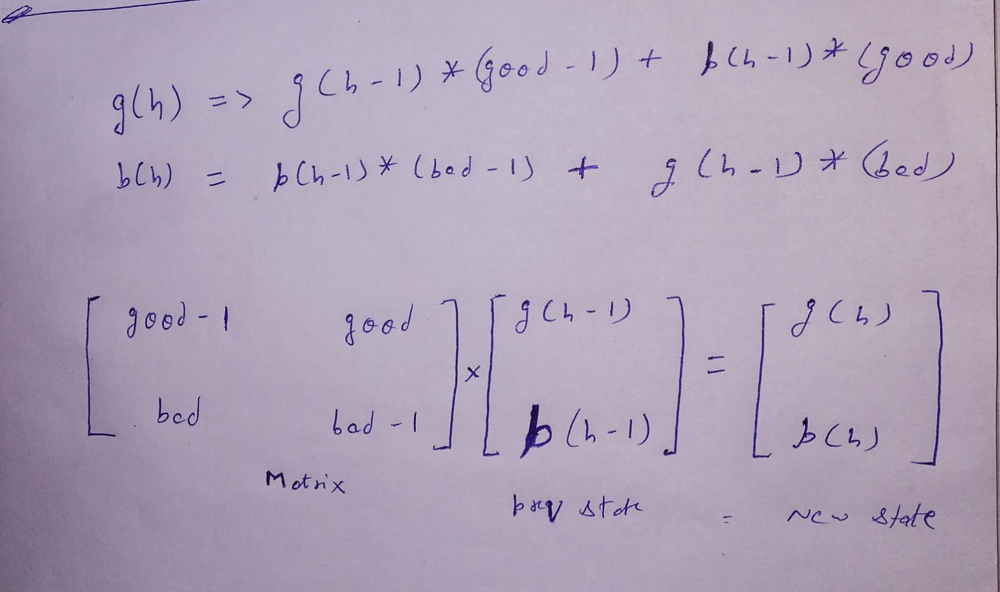 g(h) => g(h-1) * (good - 1) + b(h-1) * (good)
b(h) = b(h-1) * (bad - 1) + g(h-1) * (bad)
[ good - 1 good ] × [ g(h-1) ] = [ g(h) ]
[ bad bad - 1 ] [ b(h-1) ] [ b(h) ]
Matrix
prev state = New state